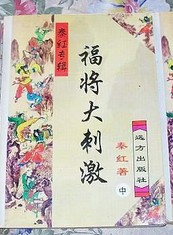 秦红专辑
福将大刺激
秦红著
中
远方出版社